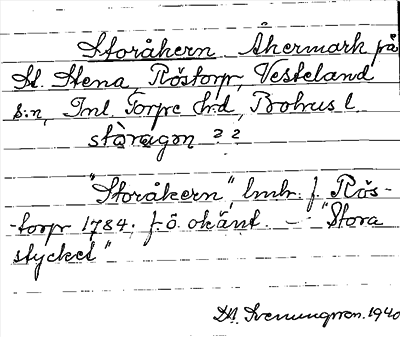 Storåkern Åkermark på
St. Stena, Röstorp, Vesteland
s:n, Inl. Torpe h:d, Bohus l.
stòragen ? ?
"Storåkern", lmh. f. Rös-
-torp 1784. f. ö. okänt. — "Stora
stycket"
Svenungsson. 1940